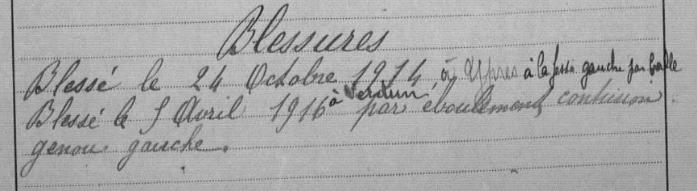 Blessures
Blessé le 24 Octobre 1914, à Ypres à la fesse gauche par balle
Blessé le 5 Avril 1916 à Verdun par éboulement, contusion
genou gauche.